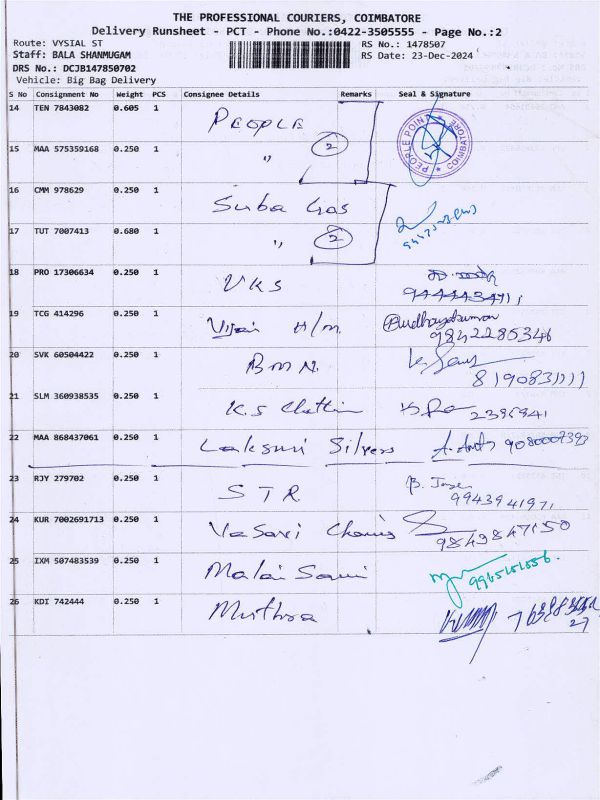 THE PROFESSIONAL COURIERS, COIMBATORE
Delivery Runsheet - PCT - Phone No.:0422-3505555 - Page No.:2
Route: VYSIAL ST RS No.: 1478507
Staff: BALA SHANMUGAM RS Date: 23-Dec-2024
DRS No.: DCJB147850702
Vehicle: Big Bag Delivery
S No Consignment No Weight PCS Consignee Details Remarks Seal & Signature
14 TEN 7843082 0.605 1 PEOPLE PEOPLE POINT COIMBATORE
15 MAA 575359168 0.250 1 " 2
16 CMM 978629 0.250 1 Suba Gas
17 TUT 7007413 0.680 1 " 2
18 PRO 17306634 0.250 1 VKS
19 TCG 414296 0.250 1 Vijai H/m 9842285346
20 SVK 60504422 0.250 1 BMN.
21 SLM 360938535 0.250 1 K.S Chettin
22 MAA 868437061 0.250 1 Laksmi Silvers
23 RJY 279702 0.250 1 STR 9943941971
24 KUR 7002691713 0.250 1 Vasavi 9843847150
25 IXM 507483539 0.250 1 Malai Sami
26 KDI 742444 0.250 1 Muthra